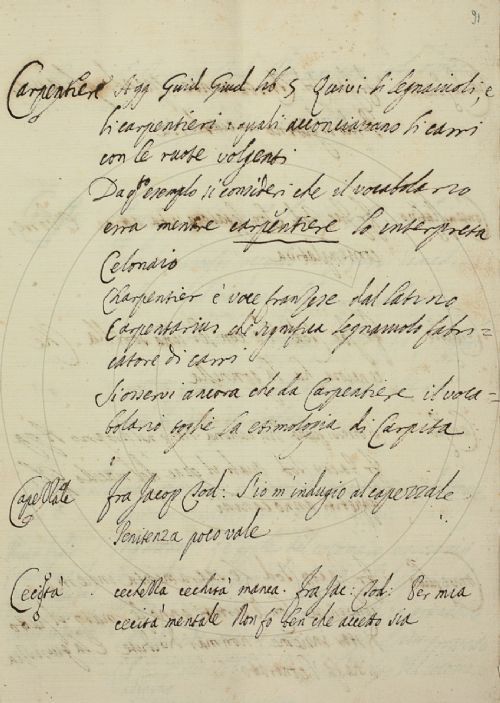 91
Carpentiere Agg Guid Giud lib 5 Quivi li legnaiuoli, e
li carpentieri i quali acconciavano li carri
con le ruote volgenti
Da qto esempio si consideri che il vocabolario
erra mentre carpentiere lo interpreta
Celonaio
Charpentier è voce franzese dal latino
Carpentarius che significa legnaiuolo fabri=
catore di carri
Si osservi ancora che da Carpentiere il voca=
bolario toglie la etimologia di Carpita
Capezzale fra Jacop Tod: S'io m indugio al capezzale
Penitenza poco vale
Cecità cechezza cechità manca. fra Jac: Tod: Per mia
cecità mentale Non fo ben che accetto sia